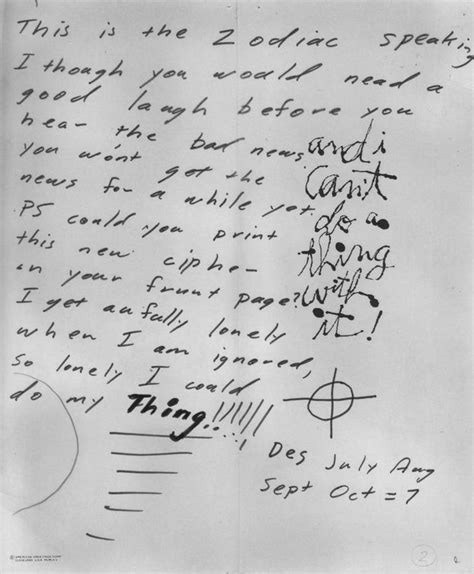 This is the Zodiac speaking
I though you would nead a
good laugh before you
hear the bad news
you won't get the
news for a while yet.
PS could you print
this new cipher
in your frunt page?
I get aufully lonely
when I am ignored,
so lonely I could
do my Thing!!!!!!
and i
can't
do a
thing
with
it!
Des July Aug
Sept Oct = 7
2